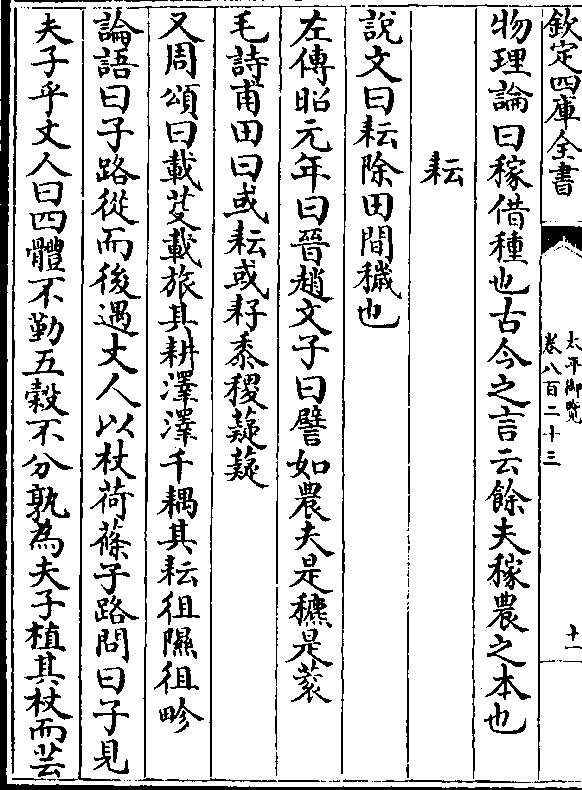 欽定四庫全書
太平御覽
卷八百二十三
十一
物理論曰稼借種也古今之言云餘夫稼農之本也
耘
說文曰耘除田間穢也
左傳昭元年曰晉趙文子曰譬如農夫是穮是蔉
毛詩甫田曰或耘或耔黍稷薿薿
又周頌曰載芟載旅其耕澤澤千耦其耘徂隰徂畛
論語曰子路從而後遇丈人以杖荷蓧子路問曰子見
夫子乎丈人曰四體不勤五榖不分孰為夫子植其杖而芸